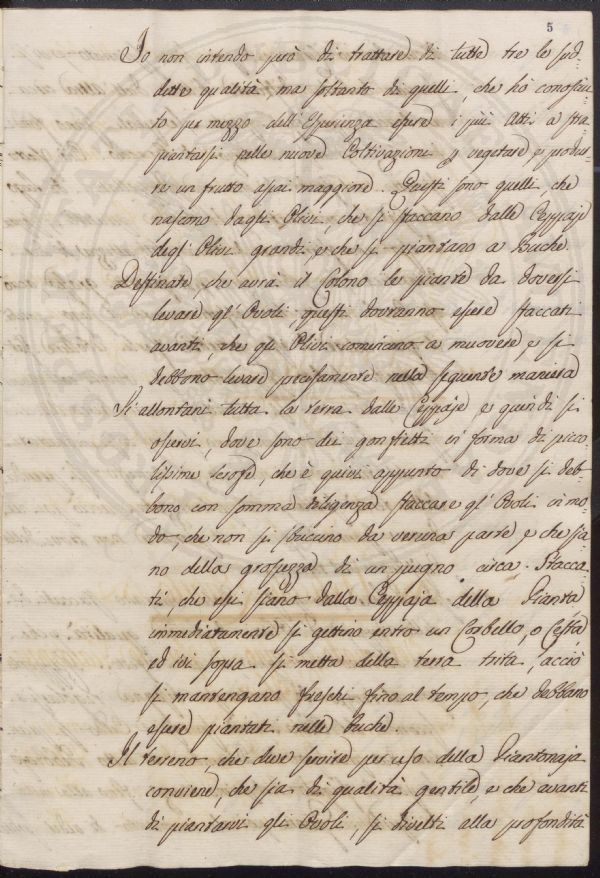 5
Io non intendo però di trattare di tutte tre le sod-
dette qualità ma soltanto di quelli, che hò conosciu-
to per mezzo dell'Esperienza essere i più Atti a tra-
piantarsi nelle nuove Coltivazioni p vegetare e produr-
re un frutto assai maggiore. Questi sono quelli che
nascono dagli Olivi, che si staccano dalle Ceppaje
degl'Olivi grandi e che si piantano a Buche
Destinate, che avrà il Colono le piante da doversi
levare gl'Ovoli, questi dovranno essere staccati
avanti, che gli Olivi comincino a muovere, e si
debbono levare precisamente nella seguente maniera
Si allontani tutta la terra dalle Ceppaje e quindi si
osservi, dove sono dei gonfietti in forma di picco-
lissime testse, che è quivi appunto di dove si deb-
bono con somma diligenza staccare gl'Ovoli in mo-
do, che non si sbuccino da veruna parte e che sia-
no della grossezza di un pugno circa. Stacca-
ti, che essi siano dalla Ceppaja della Pianta,
immediatamente si gettino entro un Corbello, o Cesta
ed ivi sopra si metta della terra trita, acciò
si mantengano freschi fino al tempo, che debbano
essere piantati nelle buche.
Il terreno, che deve servire per uso della Piantonaja
conviene, che sia di qualità gentile, e che avanti
di piantarvi gli Ovoli, si divelti alla profondità